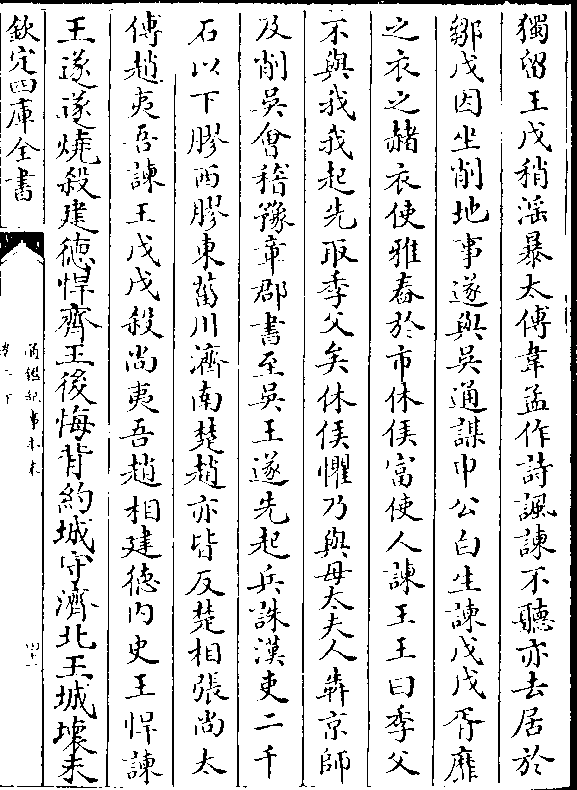 獨留王戊稍淫暴太傅韋孟作詩諷諫不聽亦去居於
鄒戊因坐削地事遂與吳通謀申公白生諫戊戊胥靡
之衣之赭衣使雅舂於市休侯富使人諫王王曰季父
不與我我起先取季父矣休侯懼乃與母太夫人犇京師
及削吳會稽豫章郡書至吳王遂先起兵誅漢吏二千
石以下膠西膠東菑川濟南楚趙亦皆反楚相張尚太
傅趙夷吾諫王戊戊殺尚夷吾趙相建德内史王悍諫
王遂遂燒殺建德悍齊王後悔背約城守濟北王城壊未
欽定四庫全書
通鑑紀事本末
卷二下